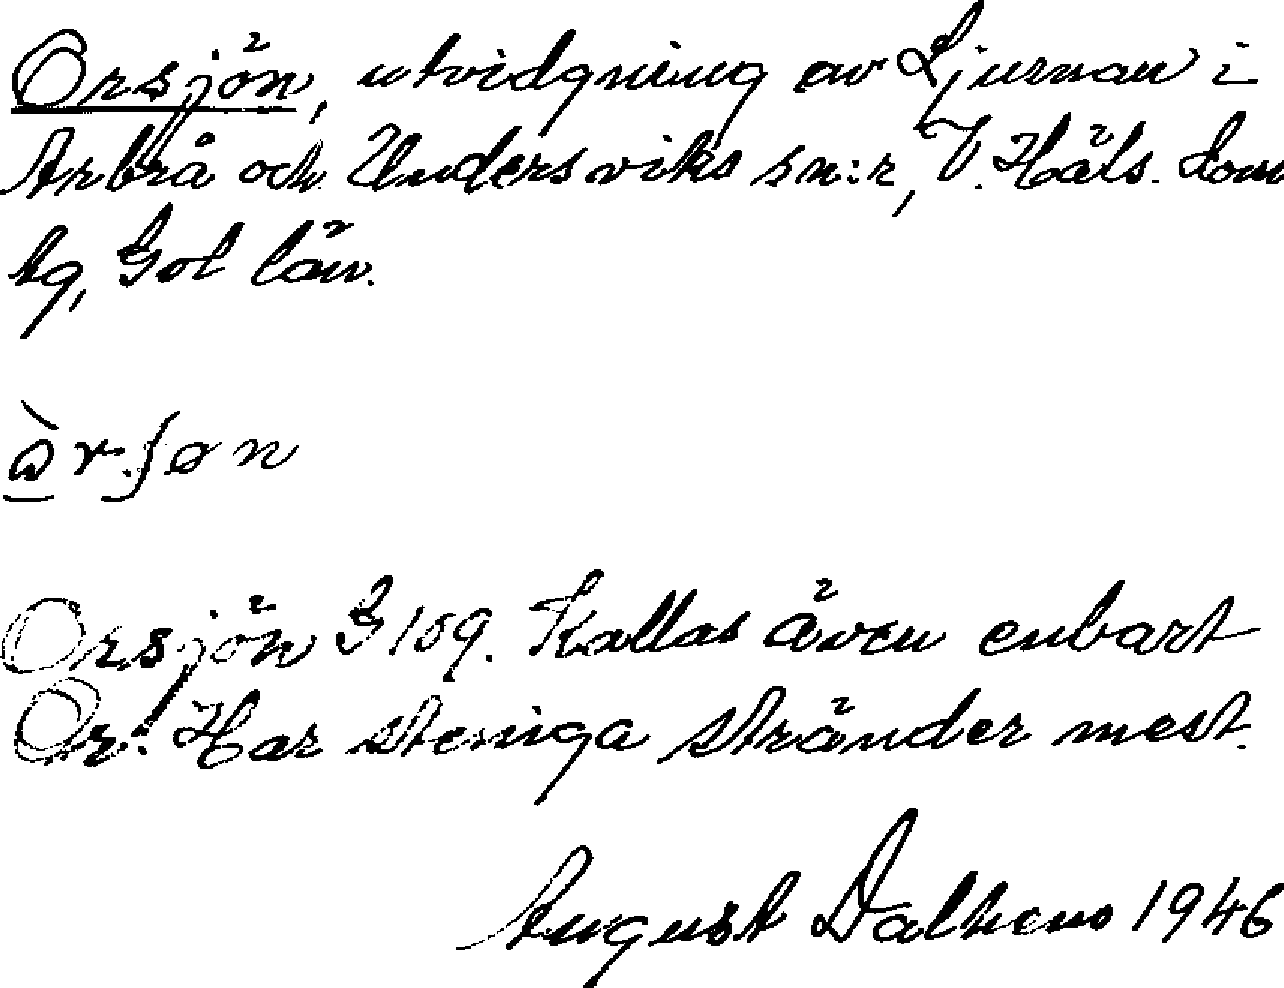 Orsjön, utvidgning av Ljusnan i
Arbrå och Undersviks sn:r, V. Häls. dom
sg, Gvl län.
Orsjön G 109. Kallas även enbart
Or. Har steniga stränder mest.
August Dalhems 1946